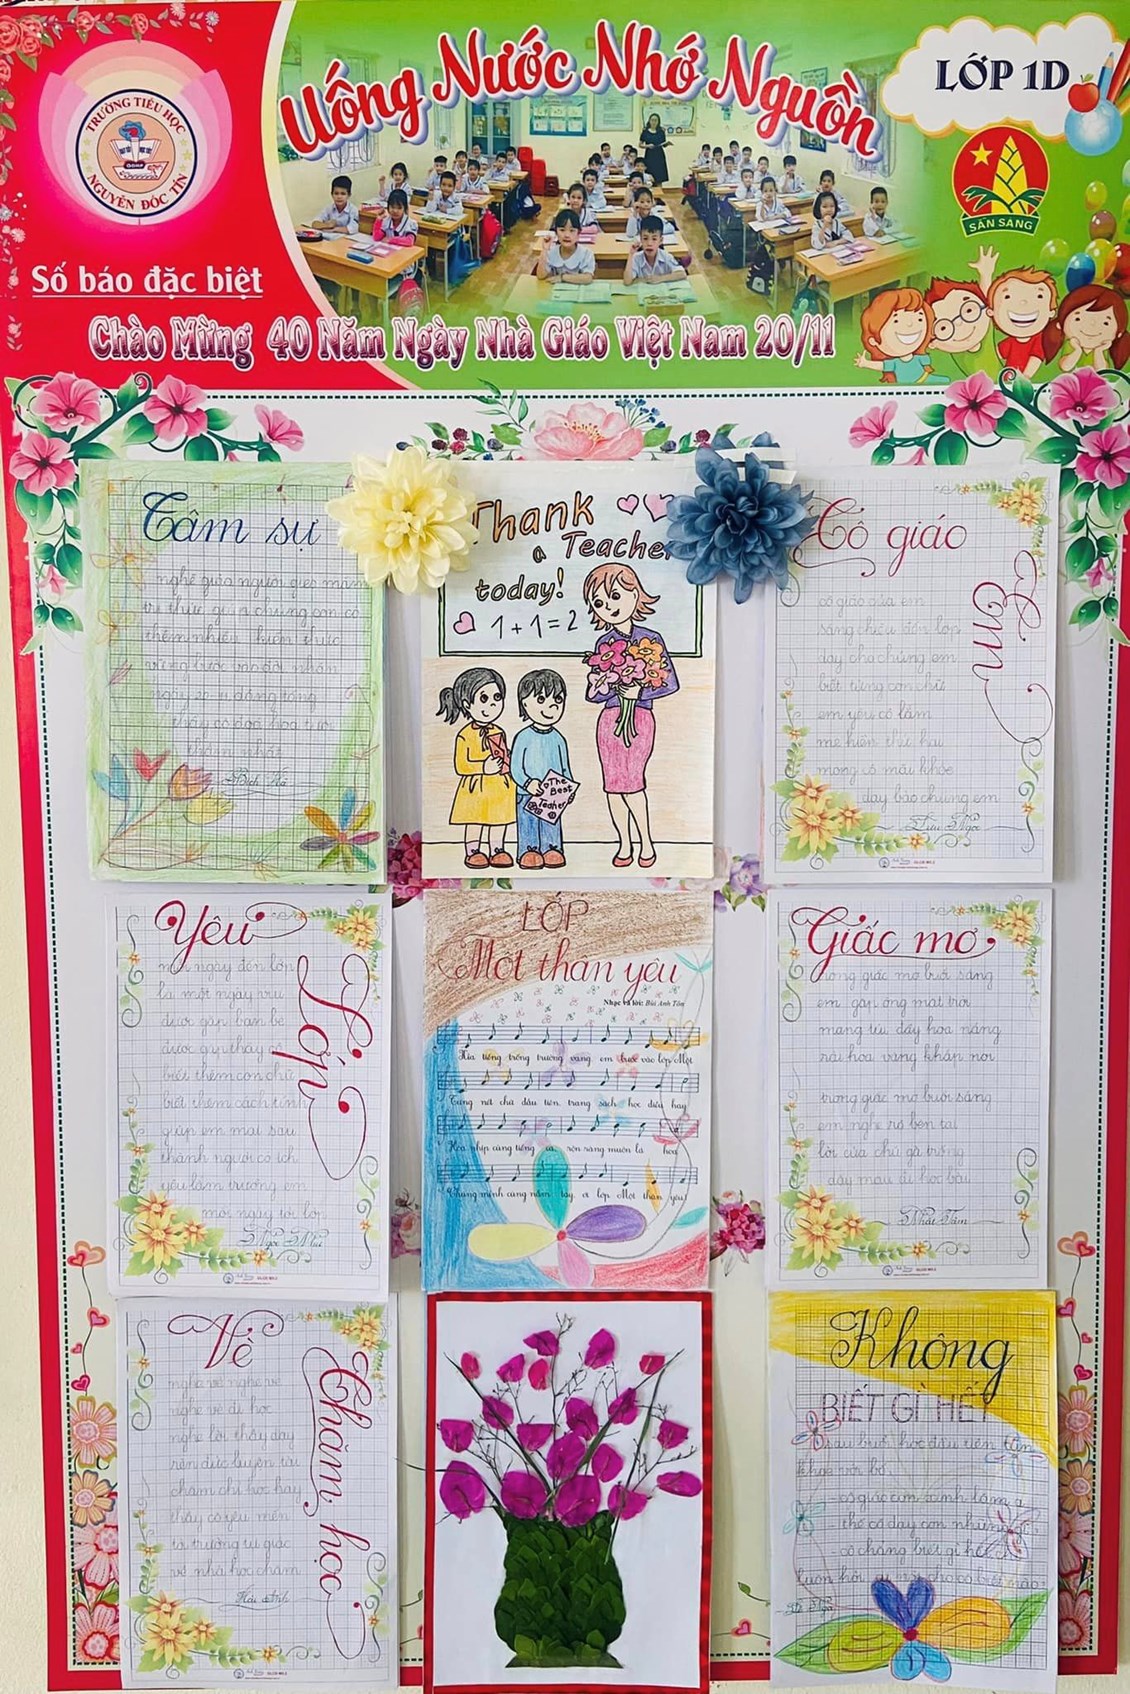 Uống Nước Nhớ Nguồn
LỚP 1D
TRƯỜNG TIỂU HỌC
NGUYỄN ĐÓC TÍN
SẴN SÀNG
Số báo đặc biệt
Chào Mừng 40 Năm Ngày Nhà Giáo Việt Nam 20/11
Tâm sự
nghề giáo người gieo mầm
tri thức giúp chúng con có
thêm nhiều kiến thức
vững bước vào đời nhân
ngày
thầy cô đoá hoa tươi
nhất
Thank
a Teacher
today!
1+1=2
The
Best
Teacher
Cô giáo
Em
cô giáo của em
sáng chiều lên lớp
dạy cho chúng em
biết từng con chữ
em yêu cô lắm
mong cô mãi khoẻ
dạy bảo chúng
Yêu
Lớp
mỗi ngày đến lớp
là một ngày vui
được gặp bạn bè
được gặp thầy cô
biết thêm con chữ
biết thêm cách tính
giúp em mai sau
thành người có ích
yêu lắm trường em
mỗi ngày tới lớp
LỚP
Một thân yêu
Nhạc và lời: Bùi Anh Tôn
Hòa tiếng trống trường vang em bước vào lớp Một
Từng nét chữ đầu tiên trang sách học điều hay
Hòa nhịp cùng tiếng ca rộn ràng muôn lá hoa
Chúng mình cùng nắm tay ơi lớp Một thân yêu
Giấc mơ
trong giấc mơ buổi sáng
em gặp ông mặt trời
mang túi đầy hoa nắng
rải hoa vàng khắp nơi
trong giấc mơ buổi sáng
em nghe rõ bên tai
lời của chú gà trống
dậy mau đi học bài
Nhất Tâm
Vè
Chăm học
nghe vẻ nghe ve
nghe vè đi học
nghe lời thầy dạy
rèn đức luyện tài
chăm chỉ học hay
thầy cô yêu mến
tới trường tự giác
về nhà học chăm
Hải Anh
Không
BIẾT GÌ HẾT
sau buổi học đầu tiên
khoe với bố
- cô giáo con xinh lắm ạ
- thế cô dạy con những gì
- cô chẳng biết gì hết